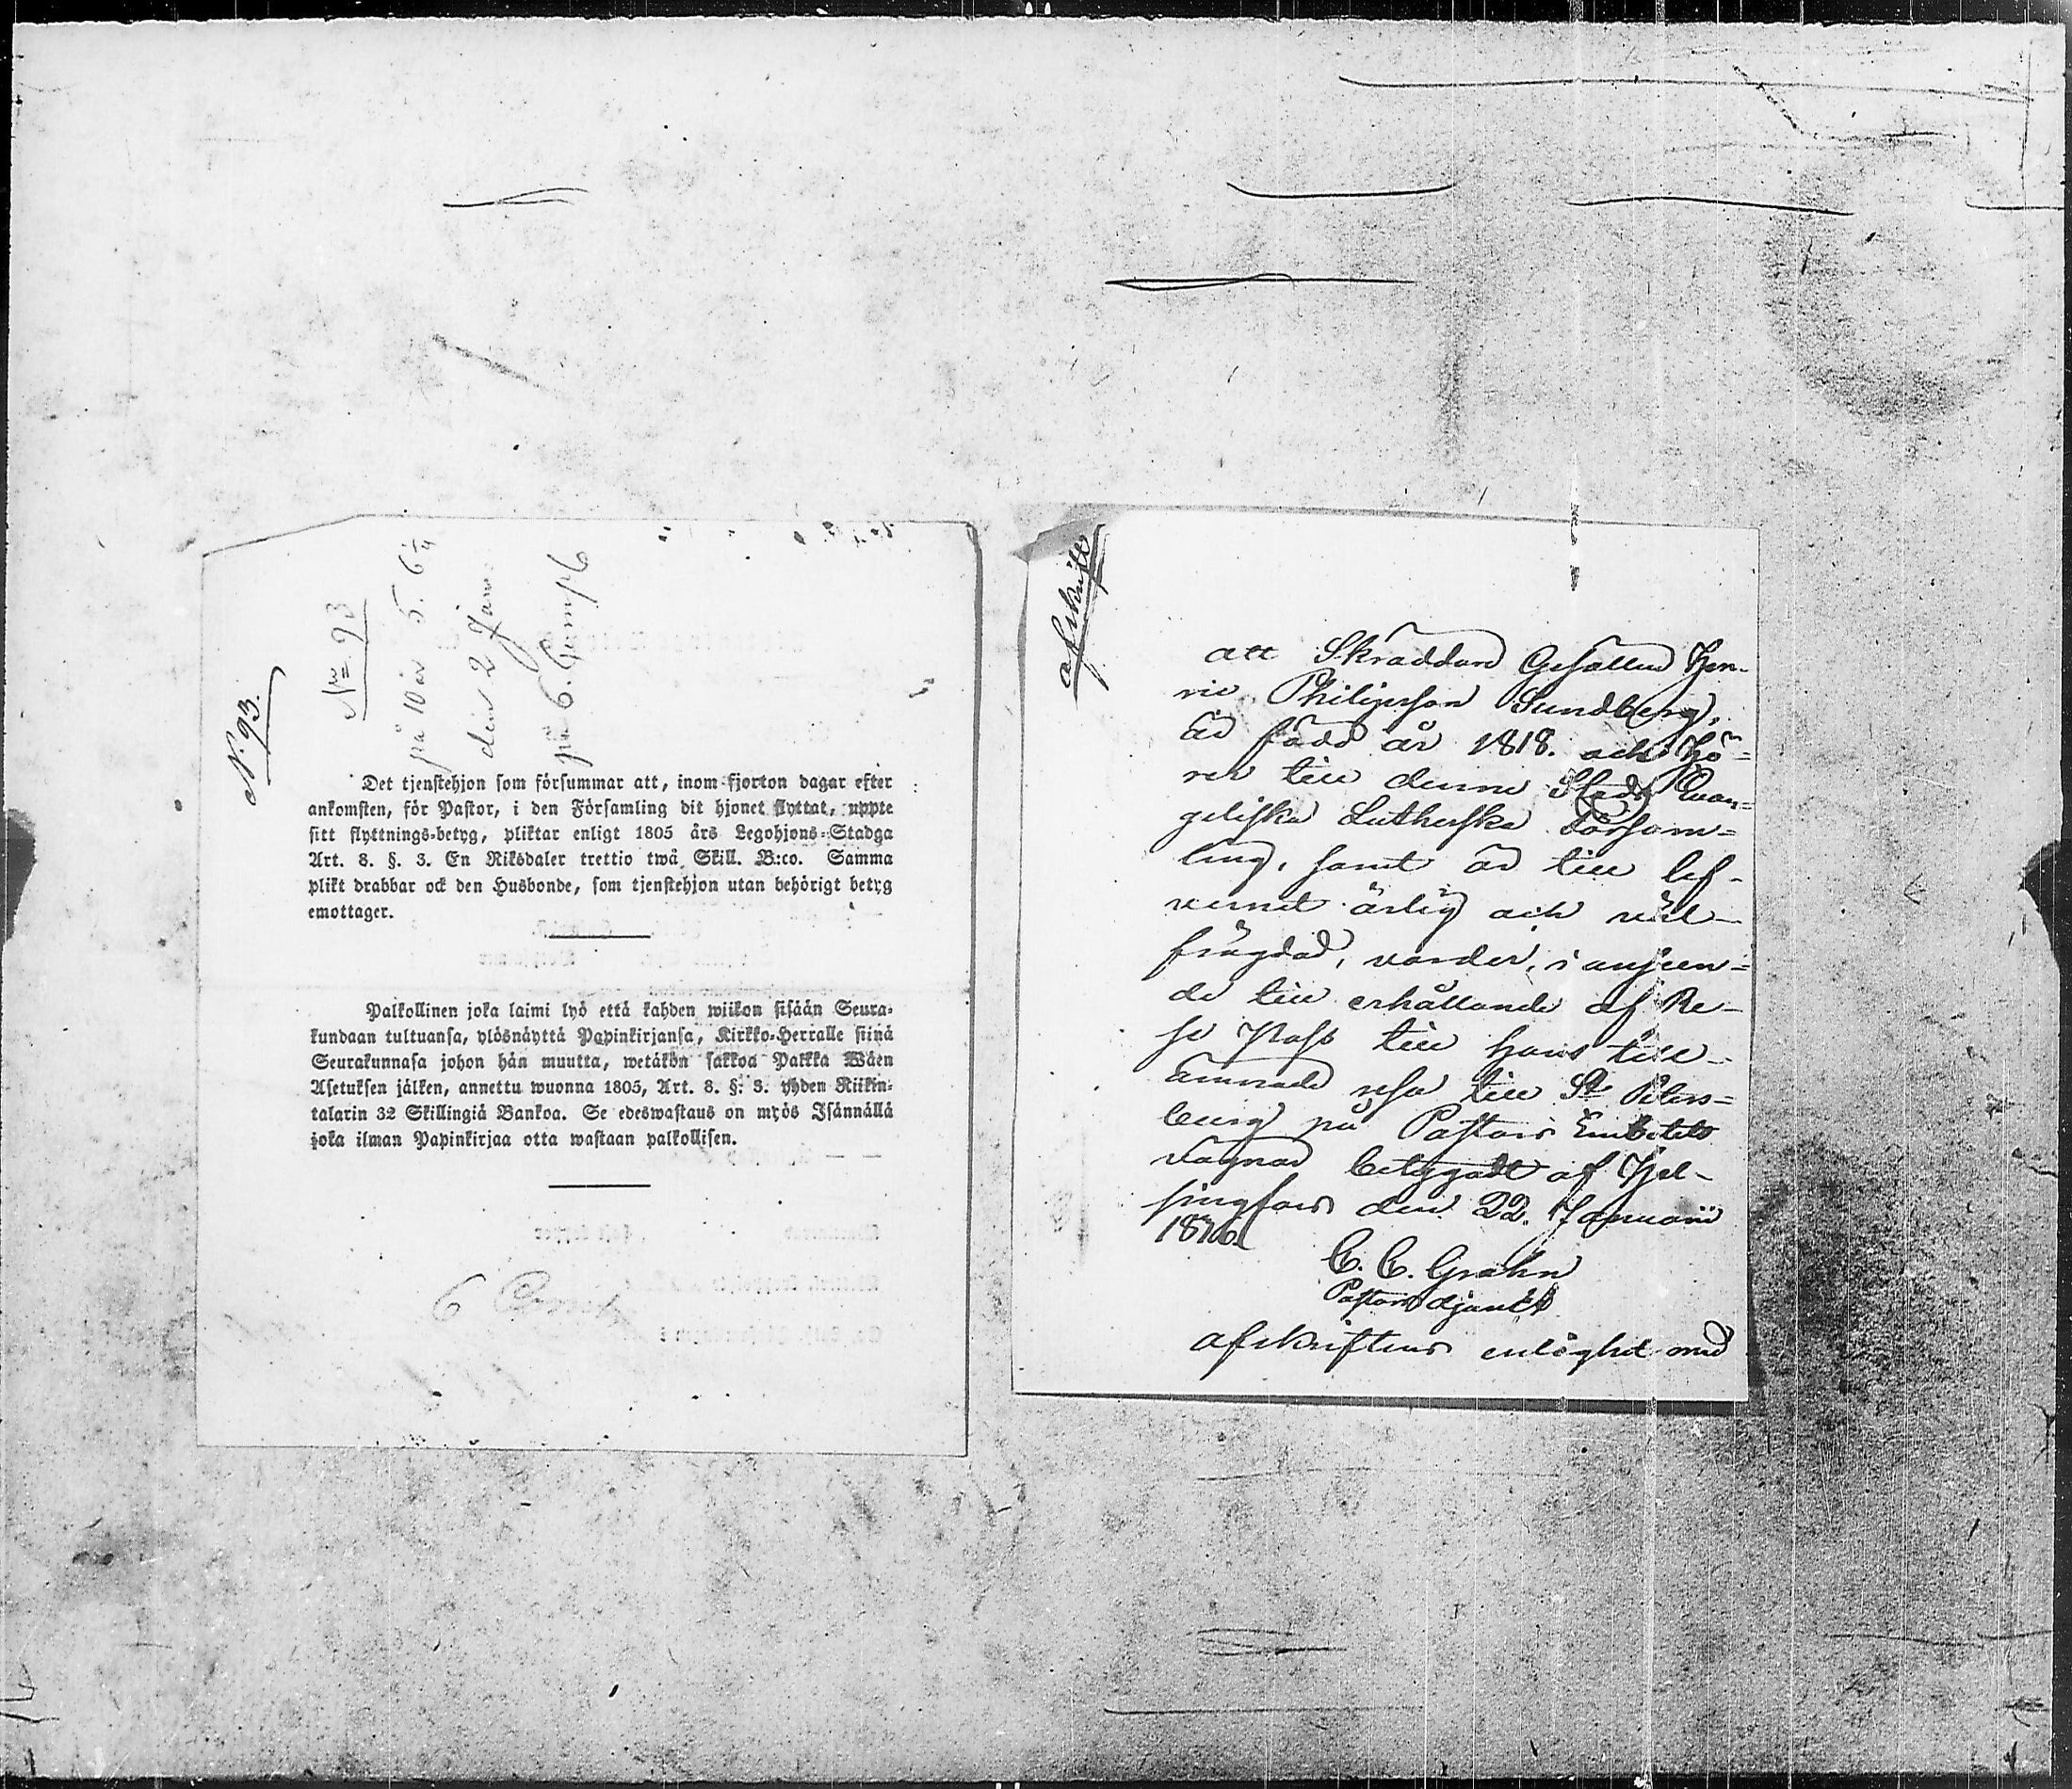 N:o 93.
N:o 93
på 10 år 5. 6/4
den 2 Janu
på 6.
Det tjenstehjon som försummar att, inom fjorton dagar efter
ankomsten, för Pastor, i den Församling dit hjonet flyttat, uppte
sitt flyttnings-betyg, pliktar enligt 1805 års Legohjons-Stadga
Art. 8. §. 3. En Riksdaler trettio twå Skill. B:co. Samma
plikt drabbar ock den Husbonde, som tjenstehjon utan behörigt betyg
emottager.
Palkollinen joka laimi lyö että kahden wiikon sisään Seura-
kundaan tultuansa, ylösnäyttä Papinkirjansa, Kirkko-Herralle siinä
Seurakunnasa johon hän muutta, wetäkön sakkoa Palkka Wäen
Asetuksen jälken, annettu wuonna 1805, Art. 8. §. 3. yhden Riikin-
talarin 32 Skillingiä Bankoa. Se edeswastaus on myös Isännällä
joka ilman Papinkirjaa otta wastaan palkollisen.
6
afskrift
att Skräddare Gesällen Hen-
ric Philipsson Sundberg,
är född år 1818. och hö-
rer till denne Stads Evan-
geliska Lutherska Församl-
ling, samt är till lef-
vernet ärlig och väl-
frägdad, varder, i anseen-
de till erhållande af Re-
se Pass till hans till-
ämnade resa till St Peters-
burg på Pastors Embetets
vägnar betygadt af Hel-
singfors den 22. Januarii
1846.
C. C. Grahn
Pastors adjunkt
afskriftens enlighet med